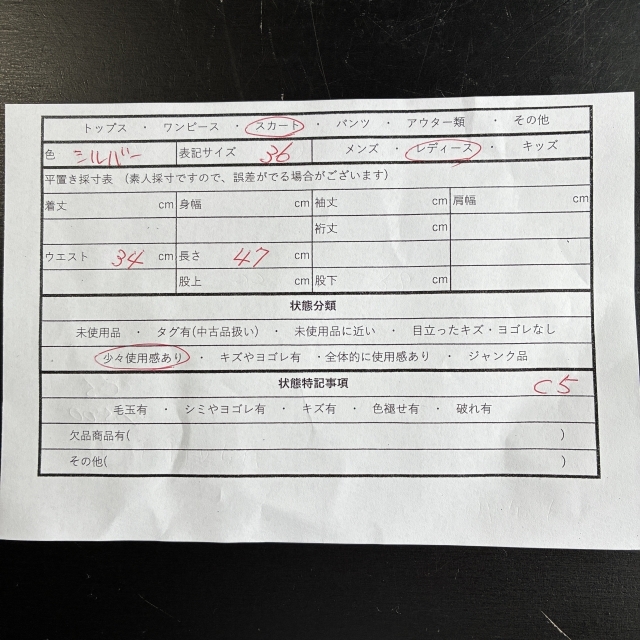 トップス ・ ワンピース ・ スカート ・ パンツ ・ アウター類 ・ その他
色 シルバー 表記サイズ 36 メンズ ・ レディース ・ キッズ
平置き採寸表 (素人採寸ですので、誤差がでる場合がございます)
着丈 cm 身幅 cm 袖丈 cm 肩幅 cm
裄丈 cm
ウエスト 34 cm 長さ 47 cm
股上 cm 股下 cm
状態分類
未使用品 ・ タグ有(中古品扱い) ・ 未使用品に近い ・ 目立ったキズ・ヨゴレなし
少々使用感あり ・ キズやヨゴレ有 ・全体的に使用感あり ・ ジャンク品
状態特記事項 C5
毛玉有 ・ シミやヨゴレ有 ・ キズ有 ・ 色褪せ有 ・ 破れ有
欠品商品有( )
その他( )